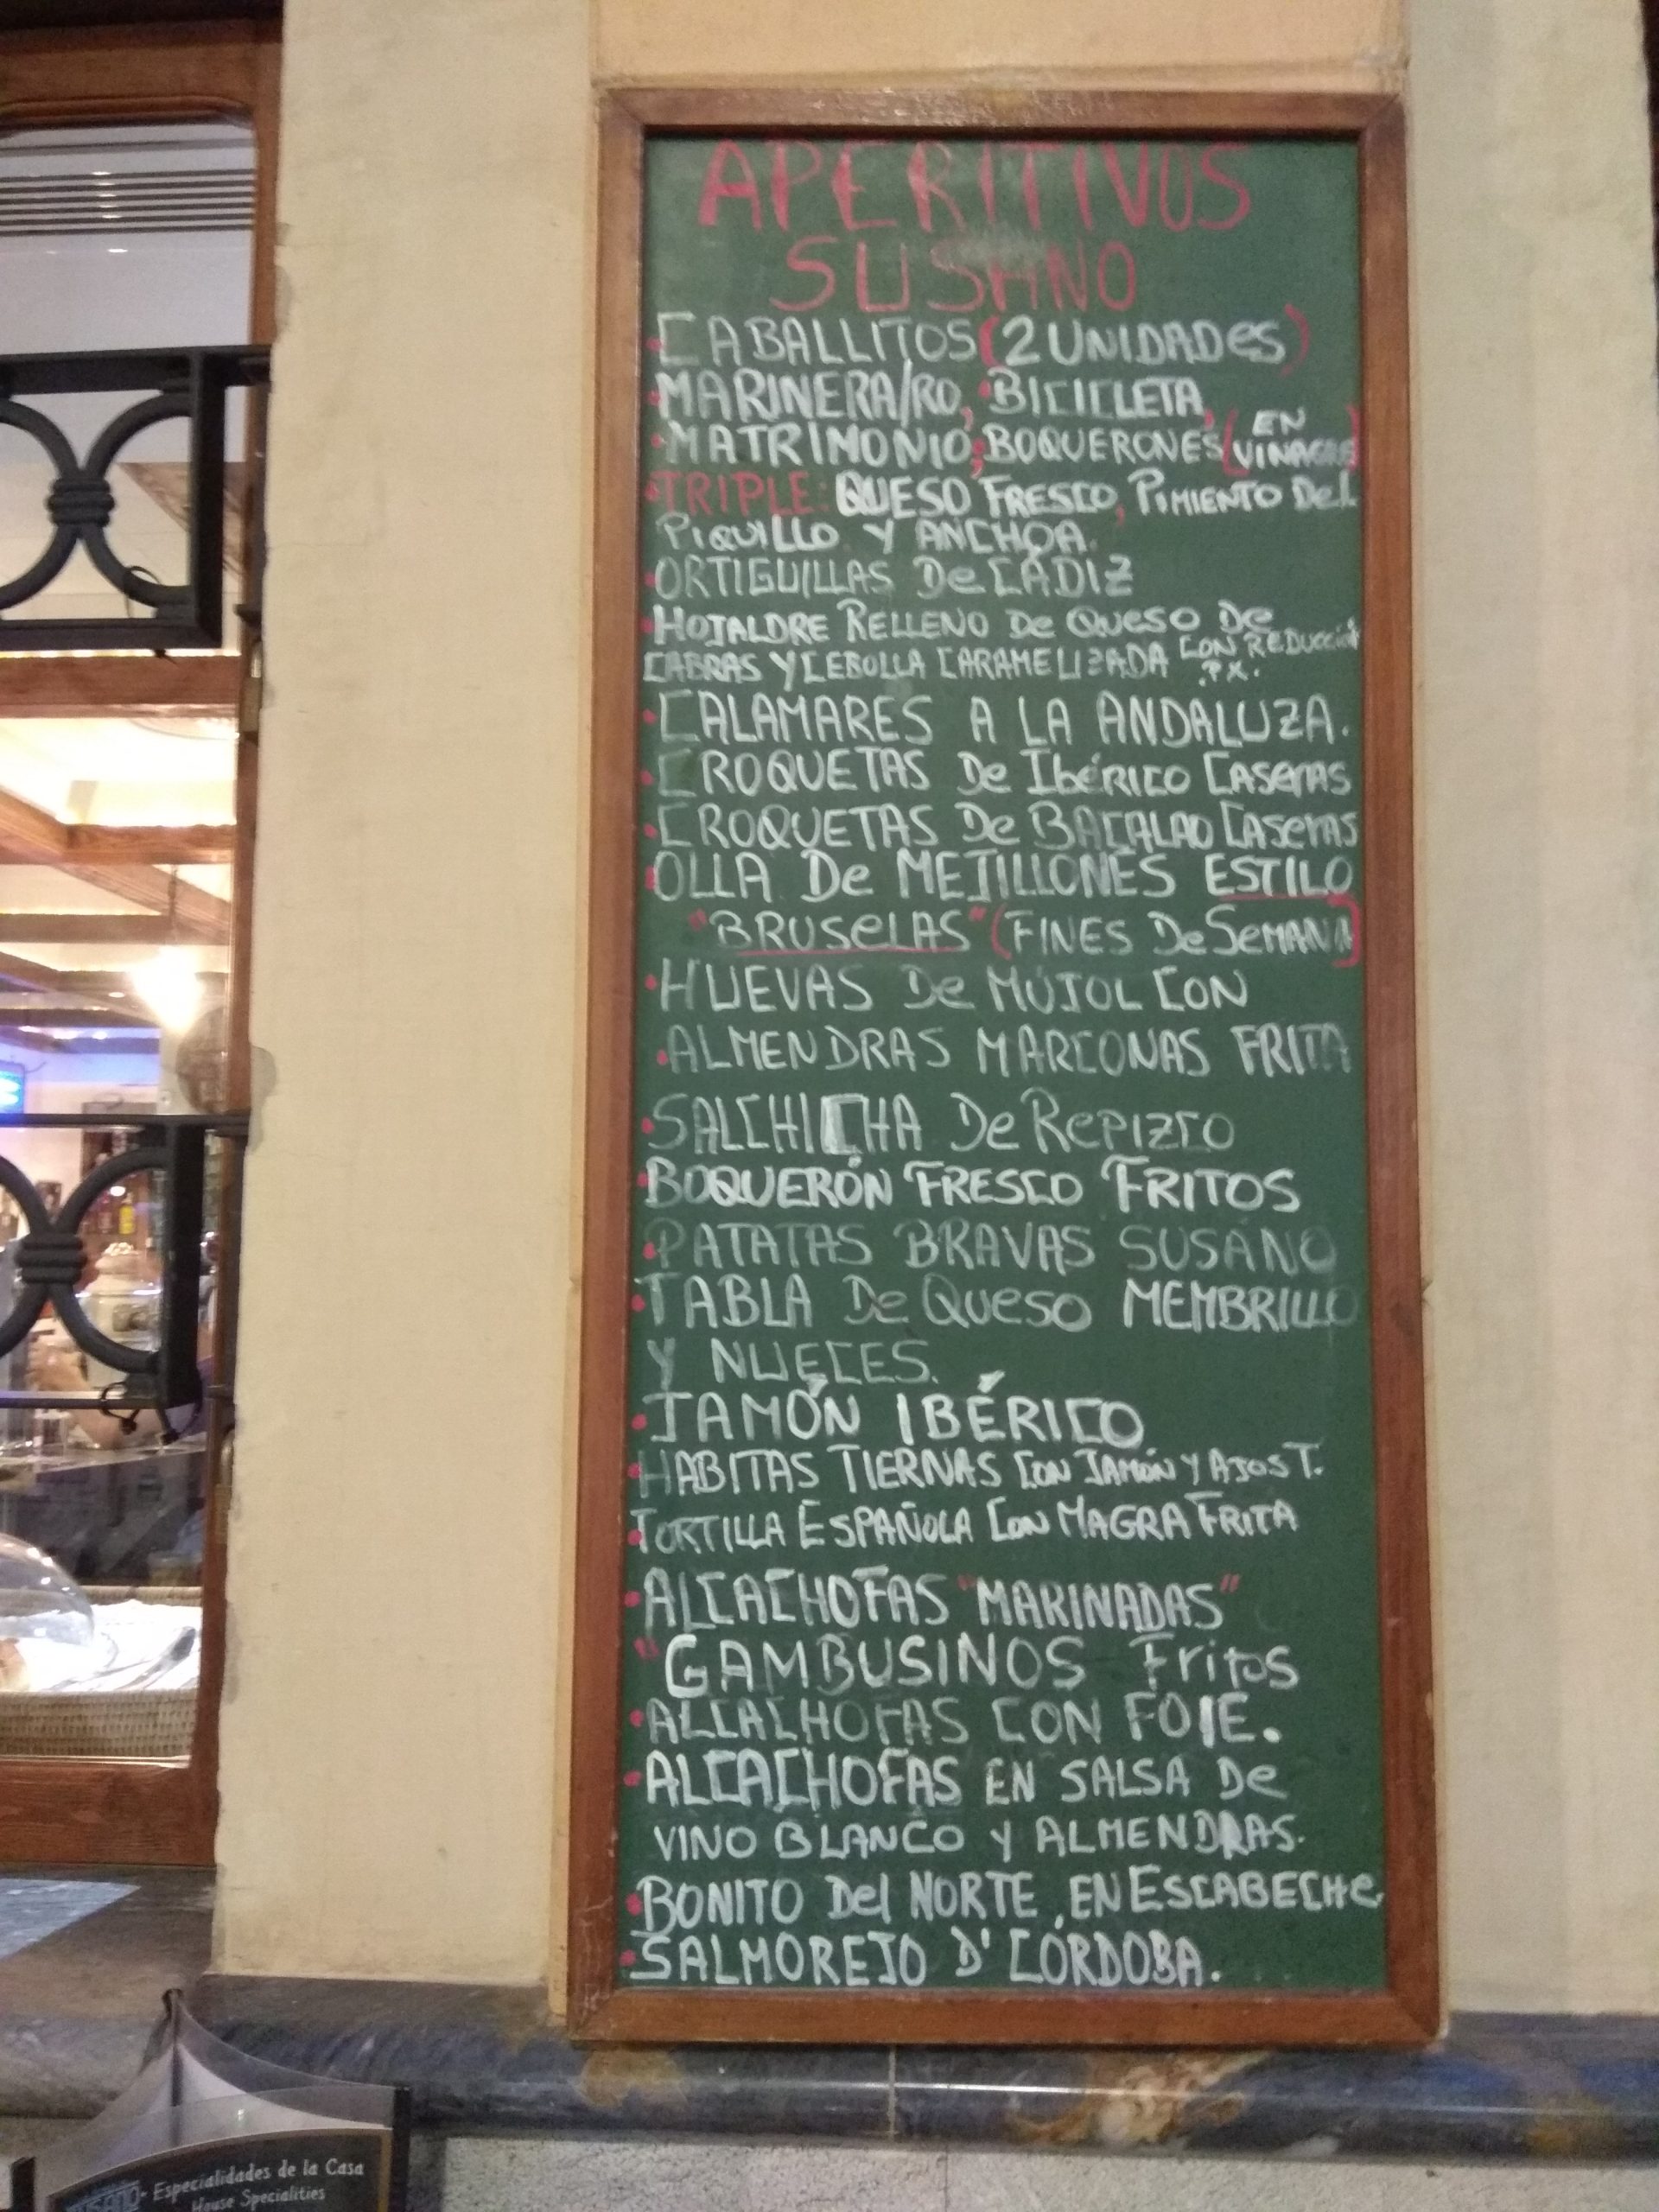 APERITIVOS
SUSANO
CABALLITOS (2 UNIDADES)
MARINERA/RO, BICICLETA,
MATRIMONIO; BOQUERONES (EN VINAGRE)
TRIPLE: QUESO FRESCO, PIMIENTO DEL
PIQUILLO Y ANCHOA.
ORTIGUILLAS De CÁDIZ
HOJALDRE RELLENO De QUESO De
CABRAS Y CEBOLLA CARAMELIZADA CON REDUCCIÓN P.X.
CALAMARES A LA ANDALUZA.
CROQUETAS De IbéRICO CASERAS
CROQUETAS De BACALAO CASERAS
OLLA De MEJILLONES ESTILO
"BRUSELAS" (FINES De SEMANA)
HUEVAS De MÚJOL CON
ALMENDRAS MARCONAS FRITA
SALCHICHA De REPIZCO
BOQUERÓN FRESCO FRITOS
PATATAS BRAVAS SUSANO
TABLA De QUESO MEMBRILLO
Y NUECES.
JAMÓN IBÉRICO
HABITAS TIERNAS CON JAMÓN Y AJOS T.
TORTILLA ESPAÑOLA CON MAGRA FRITA
ALCACHOFAS "MARINADAS"
"GAMBUSINOS Fritos
ALCACHOFAS CON FOIE.
ALCACHOFAS EN SALSA De
VINO BLANCO Y ALMENDRAS.
BONITO Del NORTE EN ESCABECHE
SALMOREJO D' CÓRDOBA.
SUSANO - Especialidades de la Casa
House Specialities